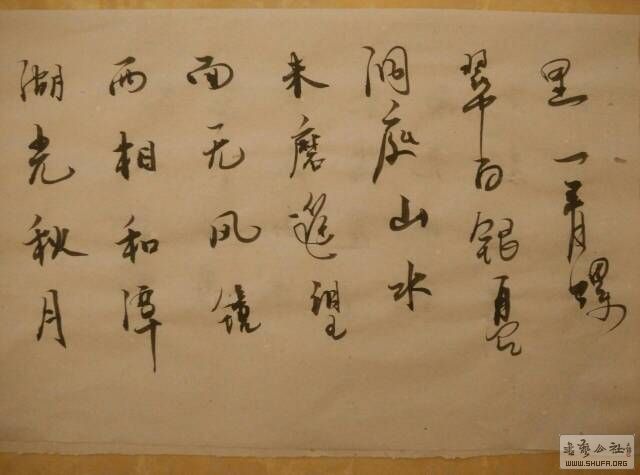 湖光秋月
两相和潭
面无风镜
未磨遥望
洞庭山水
翠白银盘
里一青螺
书艺公社
WWW.SHUFA.ORG